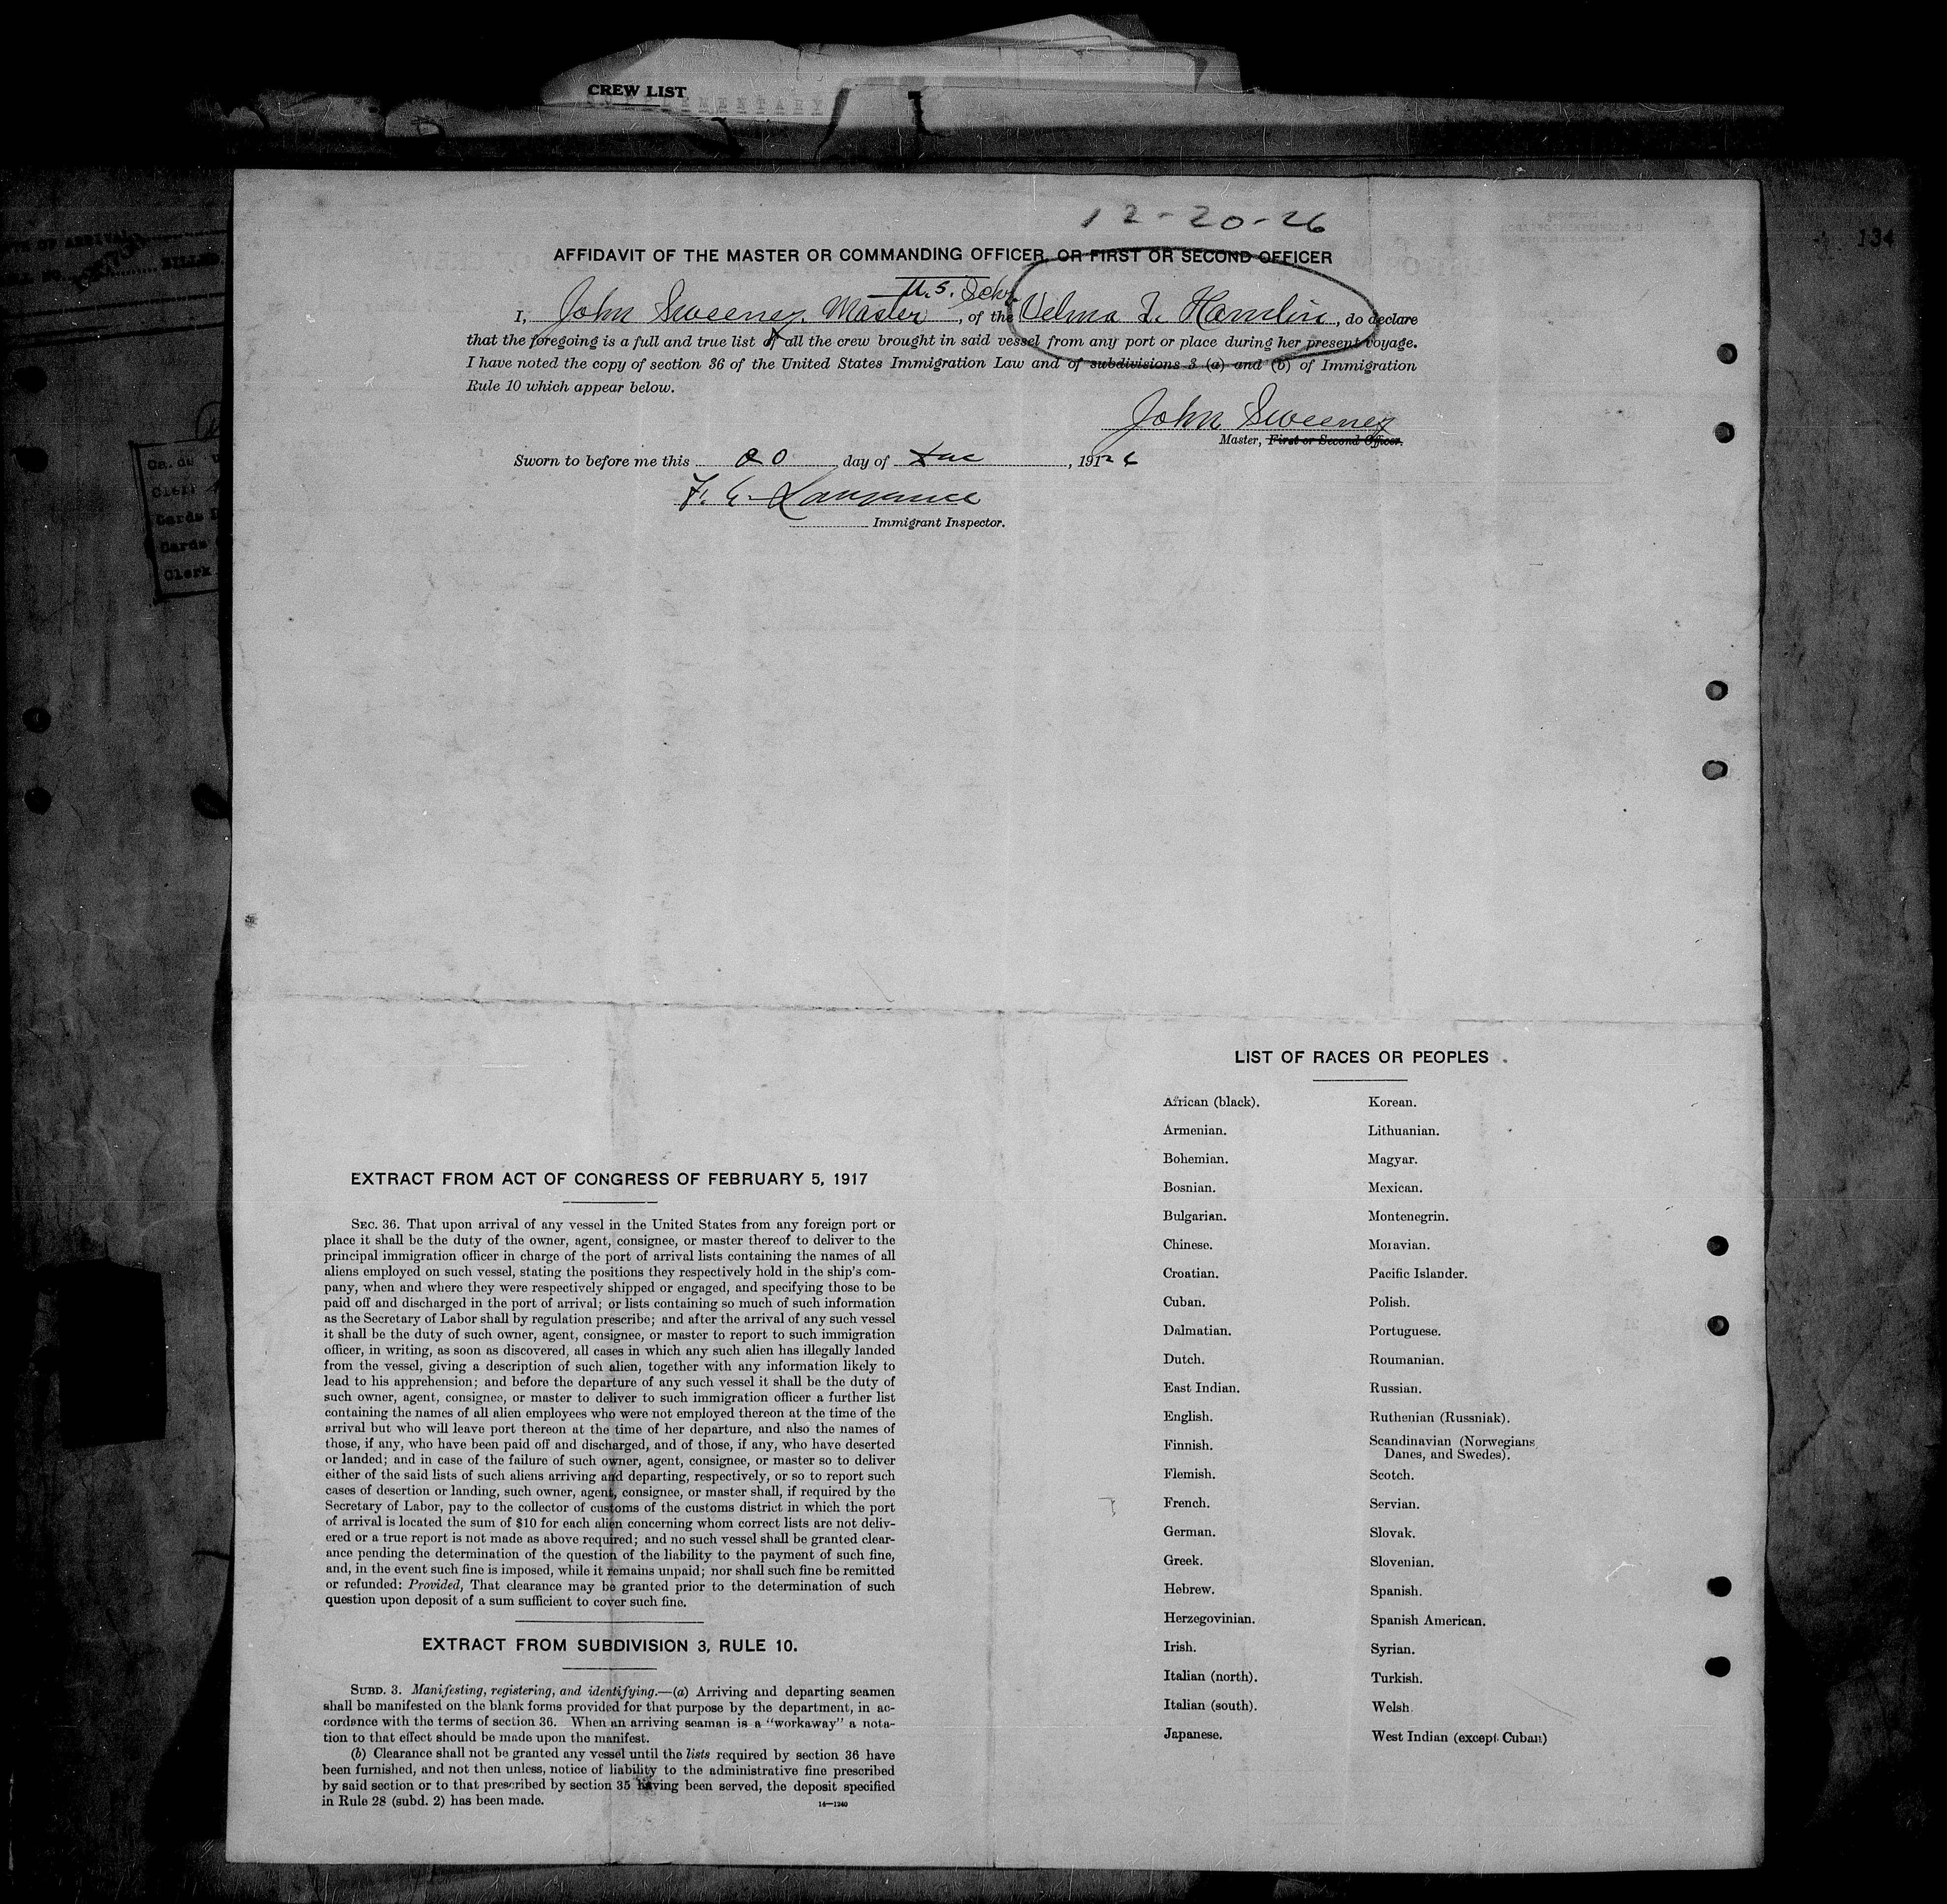 CREW LIST
SUPPLEMENTARY
12-20-26
134
AFFIDAVIT OF THE MASTER OR COMMANDING OFFICER, OR FIRST OR SECOND OFFICER
U.S. Schr.
I, John Sweeney, Master, of the Velma L. Hamlin, do declare
that the foregoing is a full and true list of all the crew brought in said vessel from any port or place during her present voyage.
I have noted the copy of section 36 of the United States Immigration Law and of subdivisions 3 (a) and (b) of Immigration
Rule 10 which appear below.
John Sweeney
Master, First or Second Officer.
Sworn to before me this 20 day of Dec, 1926
F. E.
Immigrant Inspector.
Clerk
Cards
Cards
Clerk
EXTRACT FROM ACT OF CONGRESS OF FEBRUARY 5, 1917
SEC. 36. That upon arrival of any vessel in the United States from any foreign port or
place it shall be the duty of the owner, agent, consignee, or master thereof to deliver to the
principal immigration officer in charge of the port of arrival lists containing the names of all
aliens employed on such vessel, stating the positions they respectively hold in the ship's com-
pany, when and where they were respectively shipped or engaged, and specifying those to be
paid off and discharged in the port of arrival; or lists containing so much of such information
as the Secretary of Labor shall by regulation prescribe; and after the arrival of any such vessel
it shall be the duty of such owner, agent, consignee, or master to report to such immigration
officer, in writing, as soon as discovered, all cases in which any such alien has illegally landed
from the vessel, giving a description of such alien, together with any information likely to
lead to his apprehension; and before the departure of any such vessel it shall be the duty of
such owner, agent, consignee, or master to deliver to such immigration officer a further list
containing the names of all alien employees who were not employed thereon at the time of the
arrival but who will leave port thereon at the time of her departure, and also the names of
those, if any, who have been paid off and discharged, and of those, if any, who have deserted
or landed; and in case of the failure of such owner, agent, consignee, or master so to deliver
either of the said lists of such aliens arriving and departing, respectively, or so to report such
cases of desertion or landing, such owner, agent, consignee, or master shall, if required by the
Secretary of Labor, pay to the collector of customs of the customs district in which the port
of arrival is located the sum of $10 for each alien concerning whom correct lists are not deliv-
ered or a true report is not made as above required; and no such vessel shall be granted clear-
ance pending the determination of the question of the liability to the payment of such fine,
and, in the event such fine is imposed, while it remains unpaid; nor shall such fine be remitted
or refunded: Provided, That clearance may be granted prior to the determination of such
question upon deposit of a sum sufficient to cover such fine.
EXTRACT FROM SUBDIVISION 3, RULE 10.
SUBD. 3. Manifesting, registering, and identifying.—(a) Arriving and departing seamen
shall be manifested on the blank forms provided for that purpose by the department, in ac-
cordance with the terms of section 36. When an arriving seaman is a "workaway" a nota-
tion to that effect should be made upon the manifest.
(b) Clearance shall not be granted any vessel until the lists required by section 36 have
been furnished, and not then unless, notice of liability to the administrative fine prescribed
by said section or to that prescribed by section 35 having been served, the deposit specified
in Rule 28 (subd. 2) has been made.
14—1240
LIST OF RACES OR PEOPLES
African (black).
Armenian.
Bohemian.
Bosnian.
Bulgarian.
Chinese.
Croatian.
Cuban.
Dalmatian.
Dutch.
East Indian.
English.
Finnish.
Flemish.
French.
German.
Greek.
Hebrew.
Herzegovinian.
Irish.
Italian (north).
Italian (south).
Japanese.
Korean.
Lithuanian.
Magyar.
Mexican.
Montenegrin.
Moravian.
Pacific Islander.
Polish.
Portuguese.
Roumanian.
Russian.
Ruthenian (Russniak).
Scandinavian (Norwegians,
Danes, and Swedes).
Scotch.
Servian.
Slovak.
Slovenian.
Spanish.
Spanish American.
Syrian.
Turkish.
Welsh.
West Indian (except Cuban)